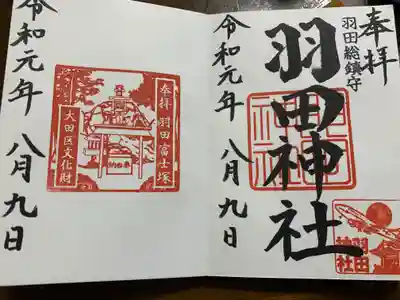 奉拝
羽田総鎮守
羽田神社
令和元年 八月九日
羽田神社
奉拝 羽田富士塚
大田区文化財
令和元年 八月九日